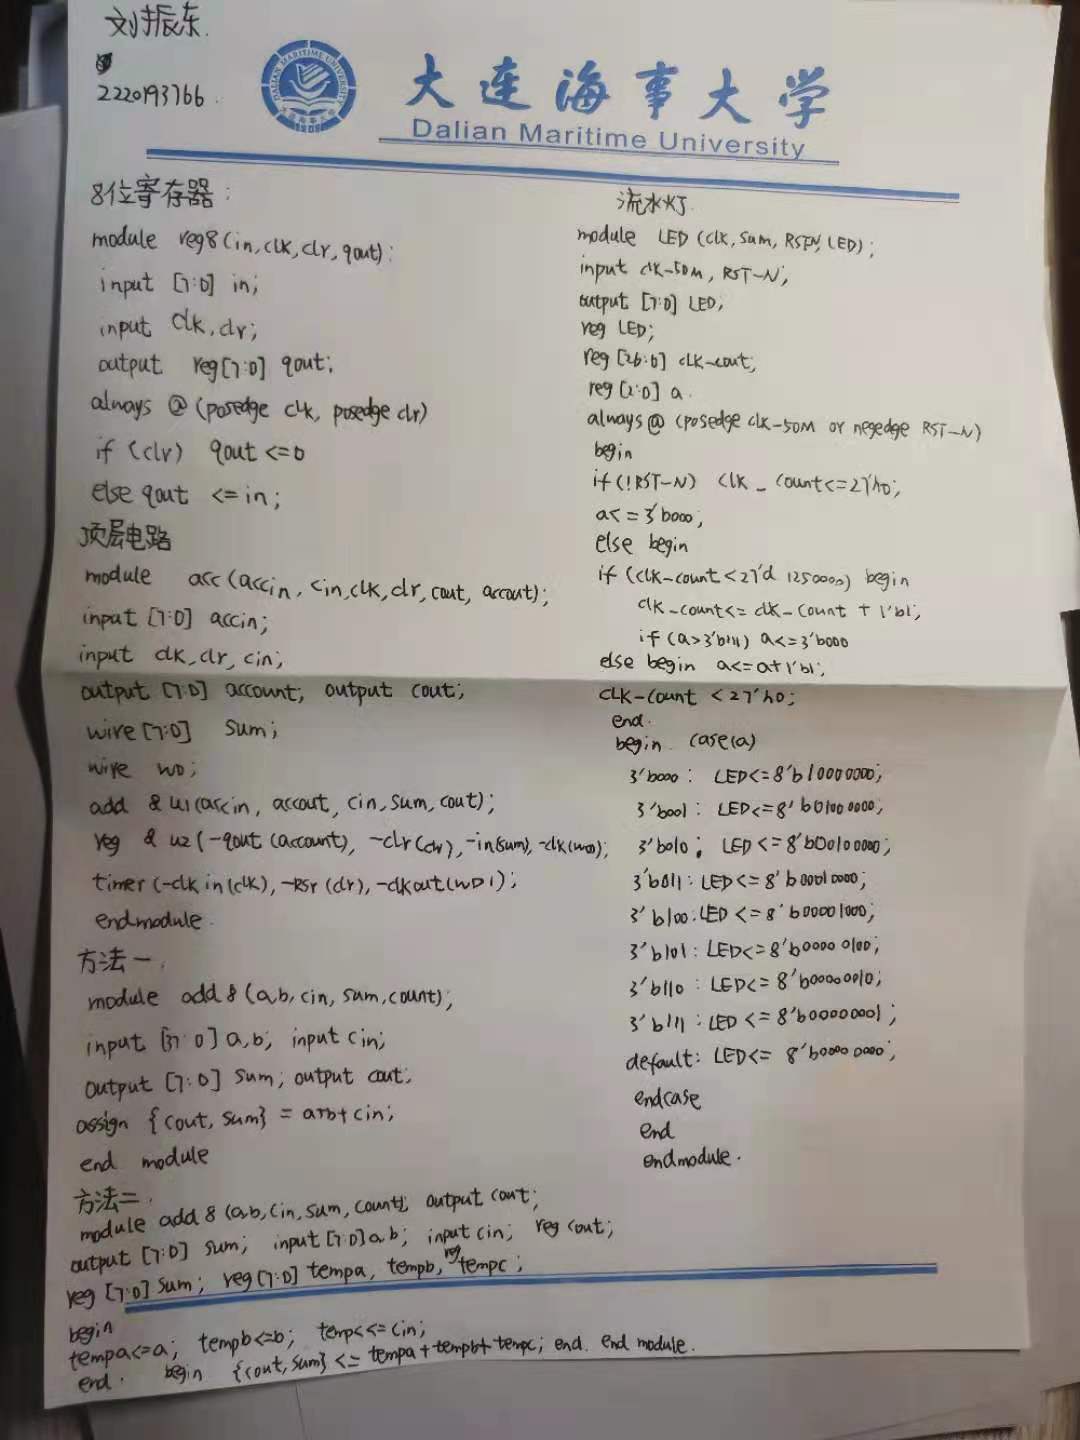 刘振东.
2220193766.
大连海事大学
Dalian Maritime University
DALIAN MARITIME UNIVERSITY
1909
8位寄存器:
module reg8(in,clk,clr,qout):
input [7:0] in;
input clk,clr;
output reg[7:0] qout;
always @(posedge clk, posedge clr)
if (clr) qout <=0
else qout <= in;
顶层电路
module acc(accin, cin,clk,clr,cout, accout);
input [7:0] accin;
input clk,clr,cin;
output [7:0] account; output cout;
wire [7:0] sum;
wire wo;
add 8 u1(accin, accout, cin,sum,cout);
reg 8 u2(-qout(account), -clr(clr),-in(sum),-clk(wo1);
timer(-clk in(clk),-Rsr(clr),-clkout(WD1);
endmodule.
方法一.
module add8(a,b,cin,sum,count);
input [37:0] a,b; input cin;
output [7:0] sum; output cout;
assign {cout,sum} = a+b+cin;
end module
方法二.
module add8(a,b,cin,sum,count; output cout;
output [7:0] sum; input [7:0]a,b; input cin; reg cout;
reg [7:0] sum; reg[7:0] tempa, tempb, reg tempc;
begin
tempa<=a; tempb<=b; tempc<=cin;
end. begin {cout,sum} <= tempa+tempb+tempc; end. end module.
流水灯.
module LED (clk,sum,RSTN,LED);
input clk-50M, RST-N;
output [7:0] LED;
reg LED;
reg [26:0] clk-cout;
reg [2:0] a.
always@ (posedge clk-50M or negedge RST-N)
begin
if(!RST-N) clk_count<=27'h0;
a<=3'b000;
else begin
if (clk-count<27'd 1250000) begin
clk-count<= clk-count + 1'b1;
if(a>3'b111) a<=3'b000
else begin a<=a+1'b1;
clk-count <27'h0;
end.
begin. case(a)
3'b000: LED<=8'b10000000;
3'b001: LED<=8'b01000000;
3'b010: LED<=8'b00100000;
3'b011: LED<=8'b00010000;
3'b100:LED<=8'b00001000;
3'b101: LED<=8'b00000100;
3'b110: LED<=8'b00000010;
3'b111: LED<=8'b00000001;
default: LED<= 8'b00000000;
endcase
end
endmodule.